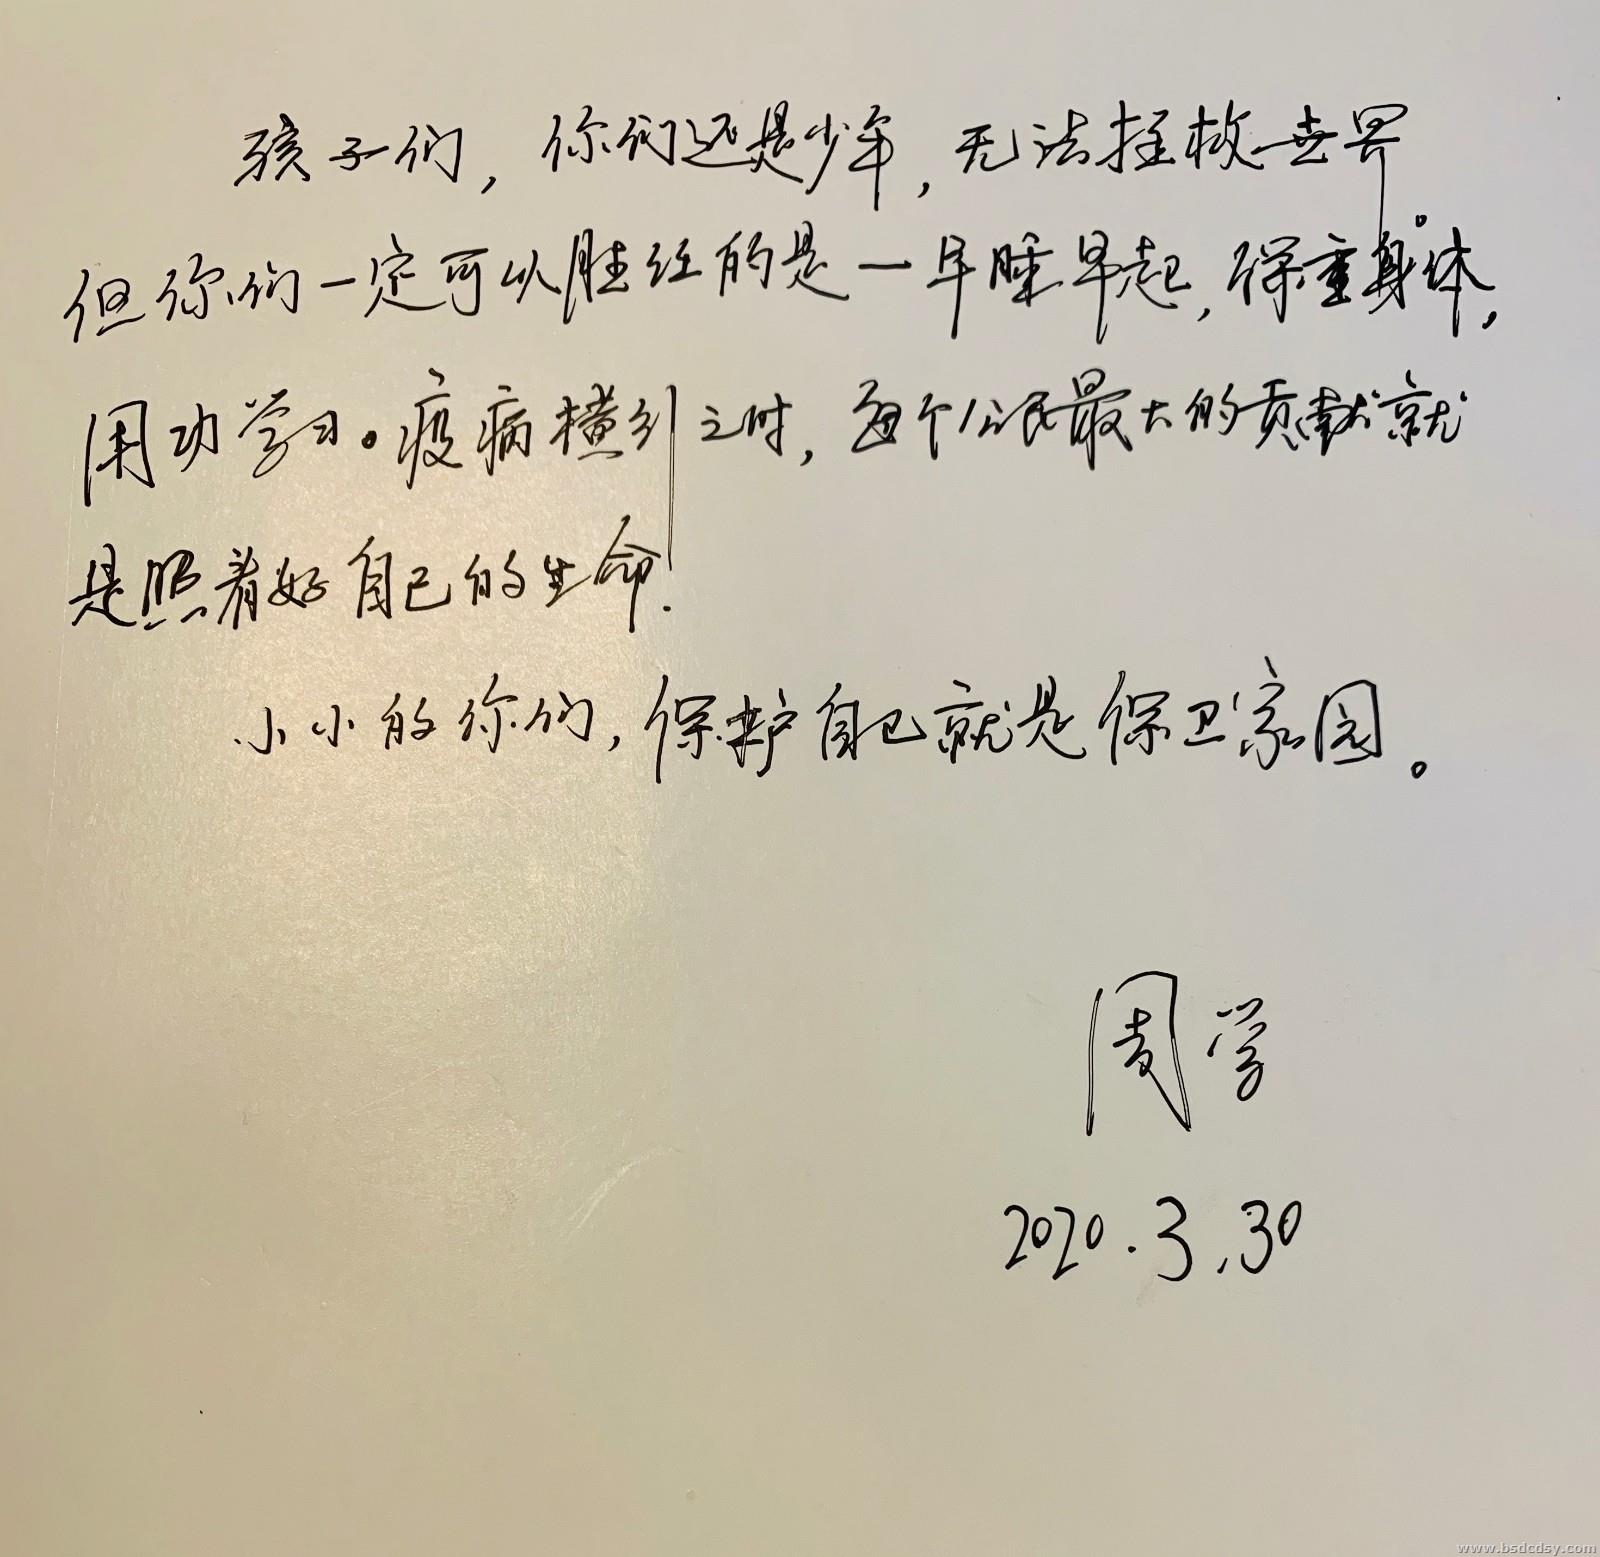 孩子们，你们还是少年，无法拯救世界。
但你们一定可以胜任的是一早睡早起，保重身体，
用功学习。疫病横行之时，每个公民最大的贡献就
是照看好自己的生命.
小小的你们，保护自己就是保卫家园。
周学
2020.3.30
www.bsdcdsy.com